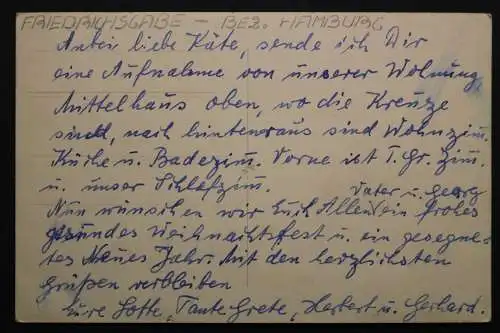 FRIEDRICHSGABE - BEZ. HAMBURG
Anbei liebe Käte, sende ich Dir
eine Aufnahme von unserer Wohnung,
Mittelhaus oben, wo die Kreuze
sind, nach hintenraus sind Wohnzim.
Küche u. Badezim. Vorne ist T. Gr. Zim.
u. unser Schlafzim.
Vater u. Georg
Nun wünschen wir Euch Allen ein frohes
gesundes Weihnachtsfest u. ein gesegne-
tes Neues Jahr. Mit den herzlichsten
Grüßen verbleiben
Eure Lotte, Tante Grete, Herbert u. Gerhard.